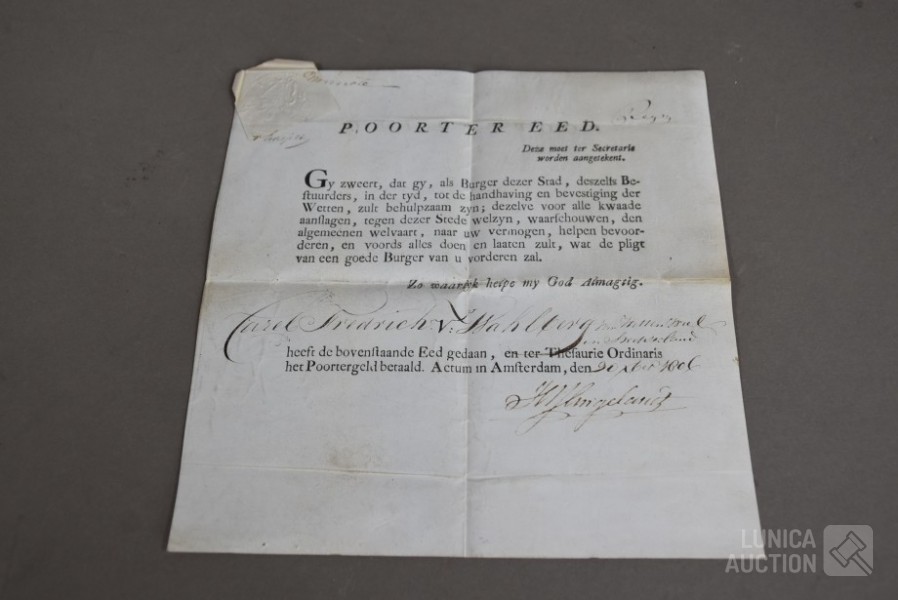 POORTER EED.
Deze moet ter Secretarie
worden aangetekent.
Gy zweert, dat gy, als Burger dezer Stad, deszelfs Be-
stuurders, in der tyd, tot de handhaving en bevestiging der
Wetten, zult behulpzaam zyn; dezelve voor alle kwaade
aanslagen, tegen dezer Stede welzyn, waarschouwen, den
algemeenen welvaart, naar uw vermogen, helpen bevoor-
deren, en voords alles doen en laaten zult, wat de pligt
van een goede Burger van u vorderen zal.
Zo waarlyk helpe my God Almagtig.
Carel Fredrich V. Wahlberg
heeft de bovenstaande Eed gedaan, en ter Thesaurie Ordinaris
het Poortergeld betaald. Actum in Amsterdam, den 1806
LUNICA
AUCTION